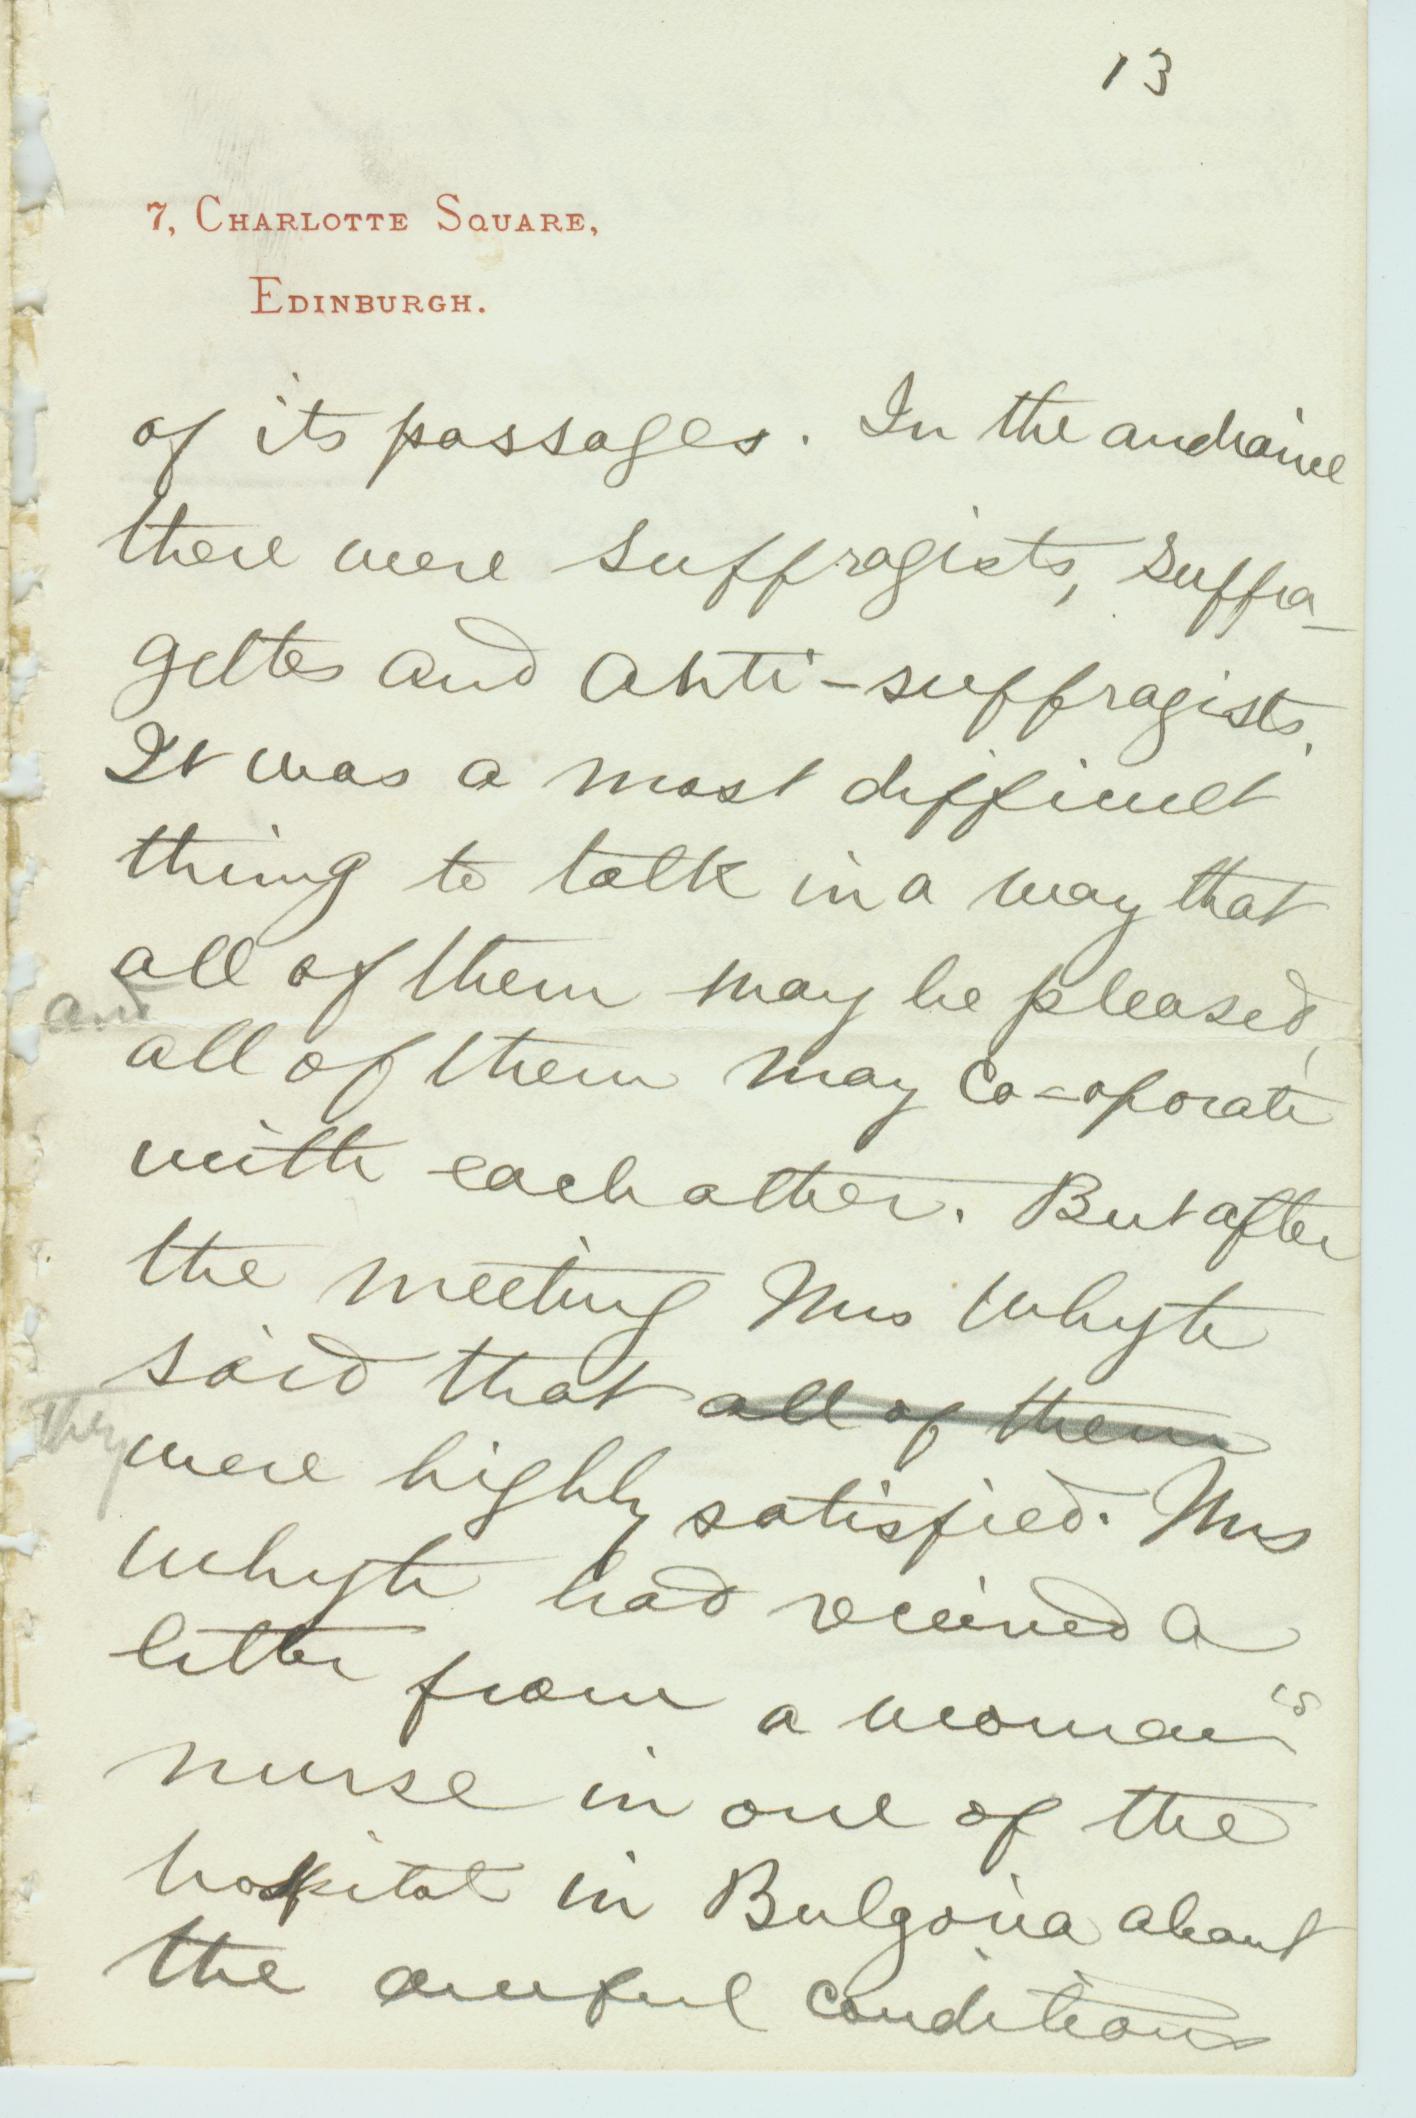 13
7, CHARLOTTE SQUARE,
EDINBURGH.
of its passages. In the audiance
there were suffragists, suffra-
gettes and anti-suffragists.
It was a most difficult
thing to talk in a way that
all of them may be pleased,
and
all of them may co-oporate
with each other. But after
the meeting Mrs Whyte
said that all of them
they were highly satisfied. Mrs
Whyte had recieved a
letter from a woman's
nurse in one of the
hospital in Bulgaria about
the aweful conditions